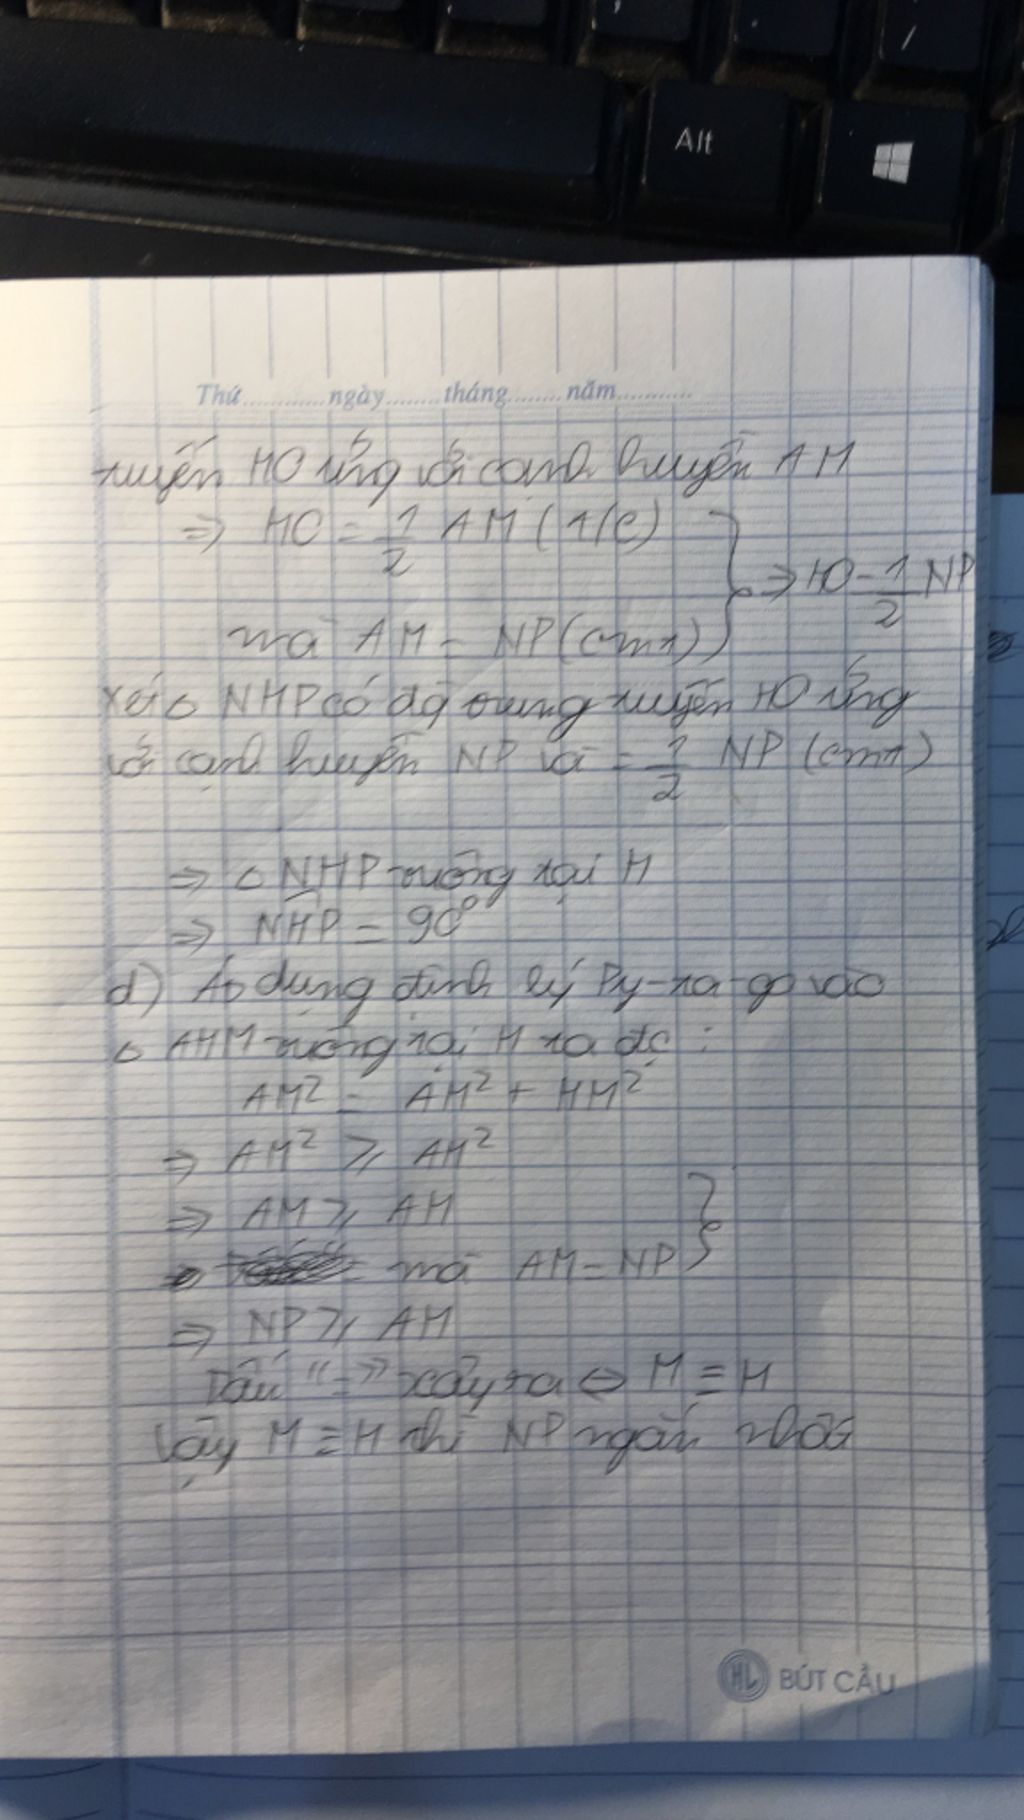 Alt
Thứ............ngày........tháng........năm............
tuyến HO ứng với cạnh huyền AM
=> HO = 1/2 AM (T/C)
=> HO = 1/2 NP
mà AM = NP (cmt)
Xét △ NHP có đg trung tuyến HO ứng
với cạnh huyền NP và = 1/2 NP (cmt)
=> △ NHP vuông tại H
=> NHP = 90°
d) Áp dụng định lý Py-ta-go vào
△ AHM vuông tại H ta đc :
AM² = AH² + HM²
=> AM² ⩾ AH²
=> AM ⩾ AH
mà AM = NP
=> NP ⩾ AH
Dấu "=" xảy ra <=> M ≡ H
Vậy M ≡ H thì NP ngắn nhất
HL BÚT CẦU